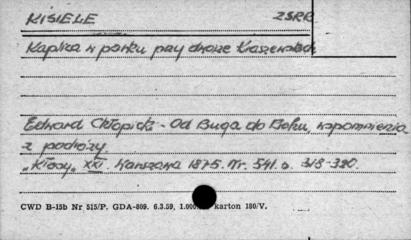 KISIELE ZSRR
Kaplica w parku przy dworze Kraszewskich
Edward Chłopicki - Od Buga do Bohu, wspomnienia
z podróży.
"Kłosy" XXI. Warszawa 1875. Nr. 541. s. 318-320.
CWD B-15b Nr 515/P. GDA-809. 6.3.59, 1.000 karton 180/V.